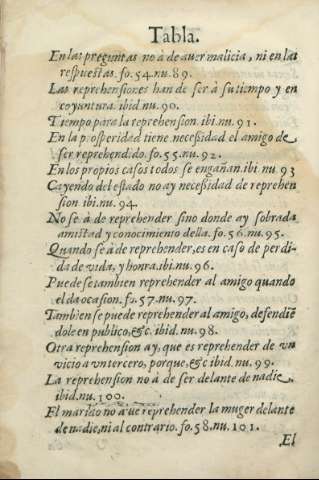 Tabla.
En las preguntas no à de auer malicia, ni en las
respuestas. fo.54.nu.89.
Las reprehensiones han de ser à su tiempo y en
coyuntura. ibid.nu.90.
Tiempo para la reprehension. ibi.nu.91.
En la prosperidad tiene necessidad el amigo de
ser reprehendido. fo.55.nu.92.
En los propios casos todos se engañan.ibi.nu.93
Cayendo del estado no ay necessidad de reprehen
sion. ibi.nu.94.
No se à de reprehender sino donde ay sobrada
amistad y conocimiento della. fo.56.nu.95.
Quando se à de reprehender, es en caso de perdi-
da de vida, y honra. ibi.nu.96.
Puede se tambien reprehender al amigo quando
el da ocasion. fo.57.nu.97.
Tambien se puede reprehender al amigo, defendiẽ
dole en publico, &c. ibid.nu.98.
Otra reprehension ay, que es reprehender de vn
vicio a vn tercero, porque, &c ibid.nu.99.
La reprehension no à de ser delante de nadie,
ibid.nu.100.
El marido no à de reprehender la muger delante
de nadie, ni al contrario. fo.58.nu.101.
El